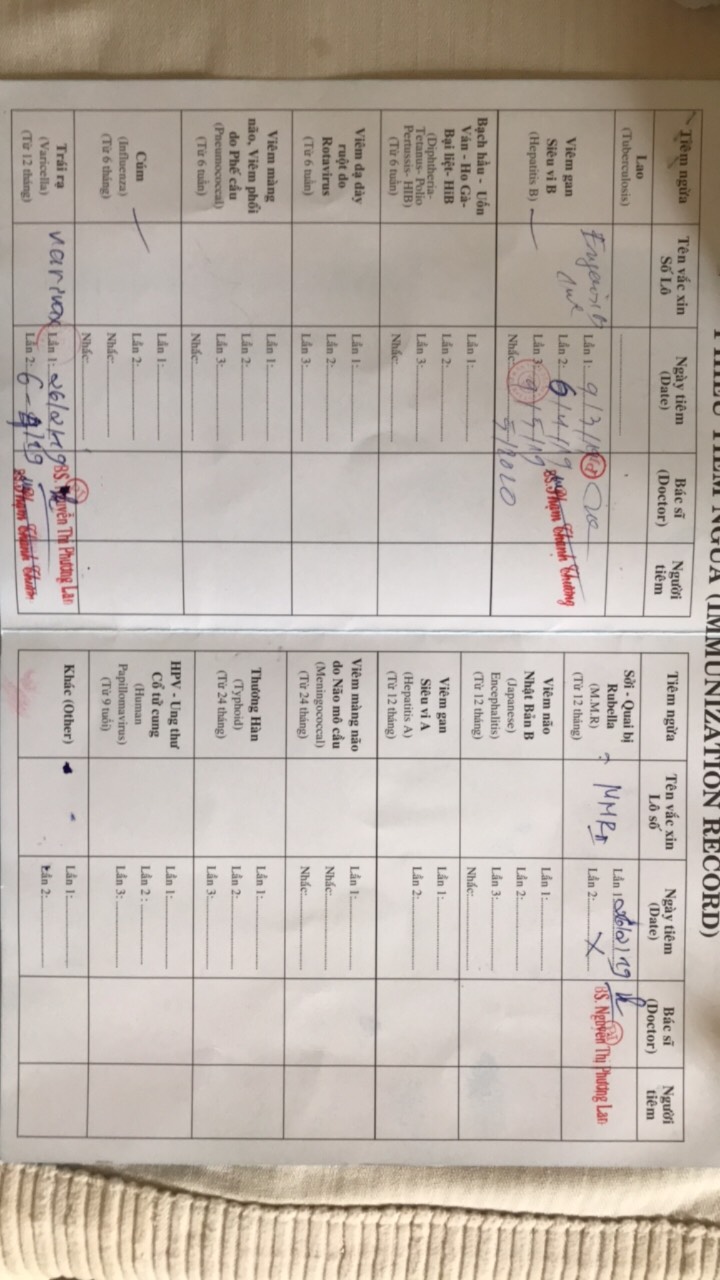 PHIẾU TIÊM NGỪA (IMMUNIZATION RECORD)
Tiêm ngừa
Tên vắc xin
Số Lô
Ngày tiêm
(Date)
Bác sĩ
(Doctor)
Người
tiêm
Lao
(Tuberculosis)
Viêm gan
Siêu vi B
(Hepatitis B)
Engerix B
1ml
Lần 1: 9/3/
Lần 2: 6/4/19
BS. Phạm Thanh Thương
Lần 3: 9/5/19
Nhắc: 5/2020
Bạch hầu - Uốn
Ván - Ho Gà-
Bại liệt- HiB
(Diphtheria-
Tetanus- Polio
Pertussis- HIB)
(Từ 6 tuần)
Lần 1:
Lần 2:
Lần 3:
Nhắc:
Viêm dạ dày
ruột do
Rotavirus
(Từ 6 tuần)
Lần 1:
Lần 2:
Lần 3:
Viêm màng
não, Viêm phổi
do Phế cầu
(Pneumococcal)
(Từ 6 tuần)
Lần 1:
Lần 2:
Lần 3:
Nhắc:
Cúm
(Influenza)
(Từ 6 tháng)
Lần 1:
Lần 2:
Nhắc:
Nhắc:
Trái rạ
(Varicella)
(Từ 12 tháng)
Varivax
Lần 1: 26/2/19
BS. Nguyễn Thị Phương Lan
Lần 2: 6-4/19
BS. Phạm Thanh Thương
Tiêm ngừa
Tên vắc xin
Lô số
Ngày tiêm
(Date)
Bác sĩ
(Doctor)
Người
tiêm
Sởi - Quai bị
Rubella
(M.M.R)
(Từ 12 tháng)
MMR II
Lần 1: 26/2/19
Lần 2: X
BS. Nguyễn Thị Phương Lan
Viêm não
Nhật Bản B
(Japanese)
Encephalitis)
(Từ 12 tháng)
Lần 1:
Lần 2:
Lần 3:
Nhắc:
Viêm gan
Siêu vi A
(Hepatitis A)
(Từ 12 tháng)
Lần 1:
Lần 2:
Viêm màng não
do Não mô cầu
(Meningococcal)
(Từ 24 tháng)
Lần 1:
Nhắc:
Nhắc:
Thương Hàn
(Typhoid)
(Từ 24 tháng)
Lần 1:
Lần 2:
Lần 3:
HPV - Ung thư
Cổ tử cung
(Human
Papillomavirus)
(Từ 9 tuổi)
Lần 1:
Lần 2 :
Lần 3:
Khác (Other)
Lần 1:
Lần 2: